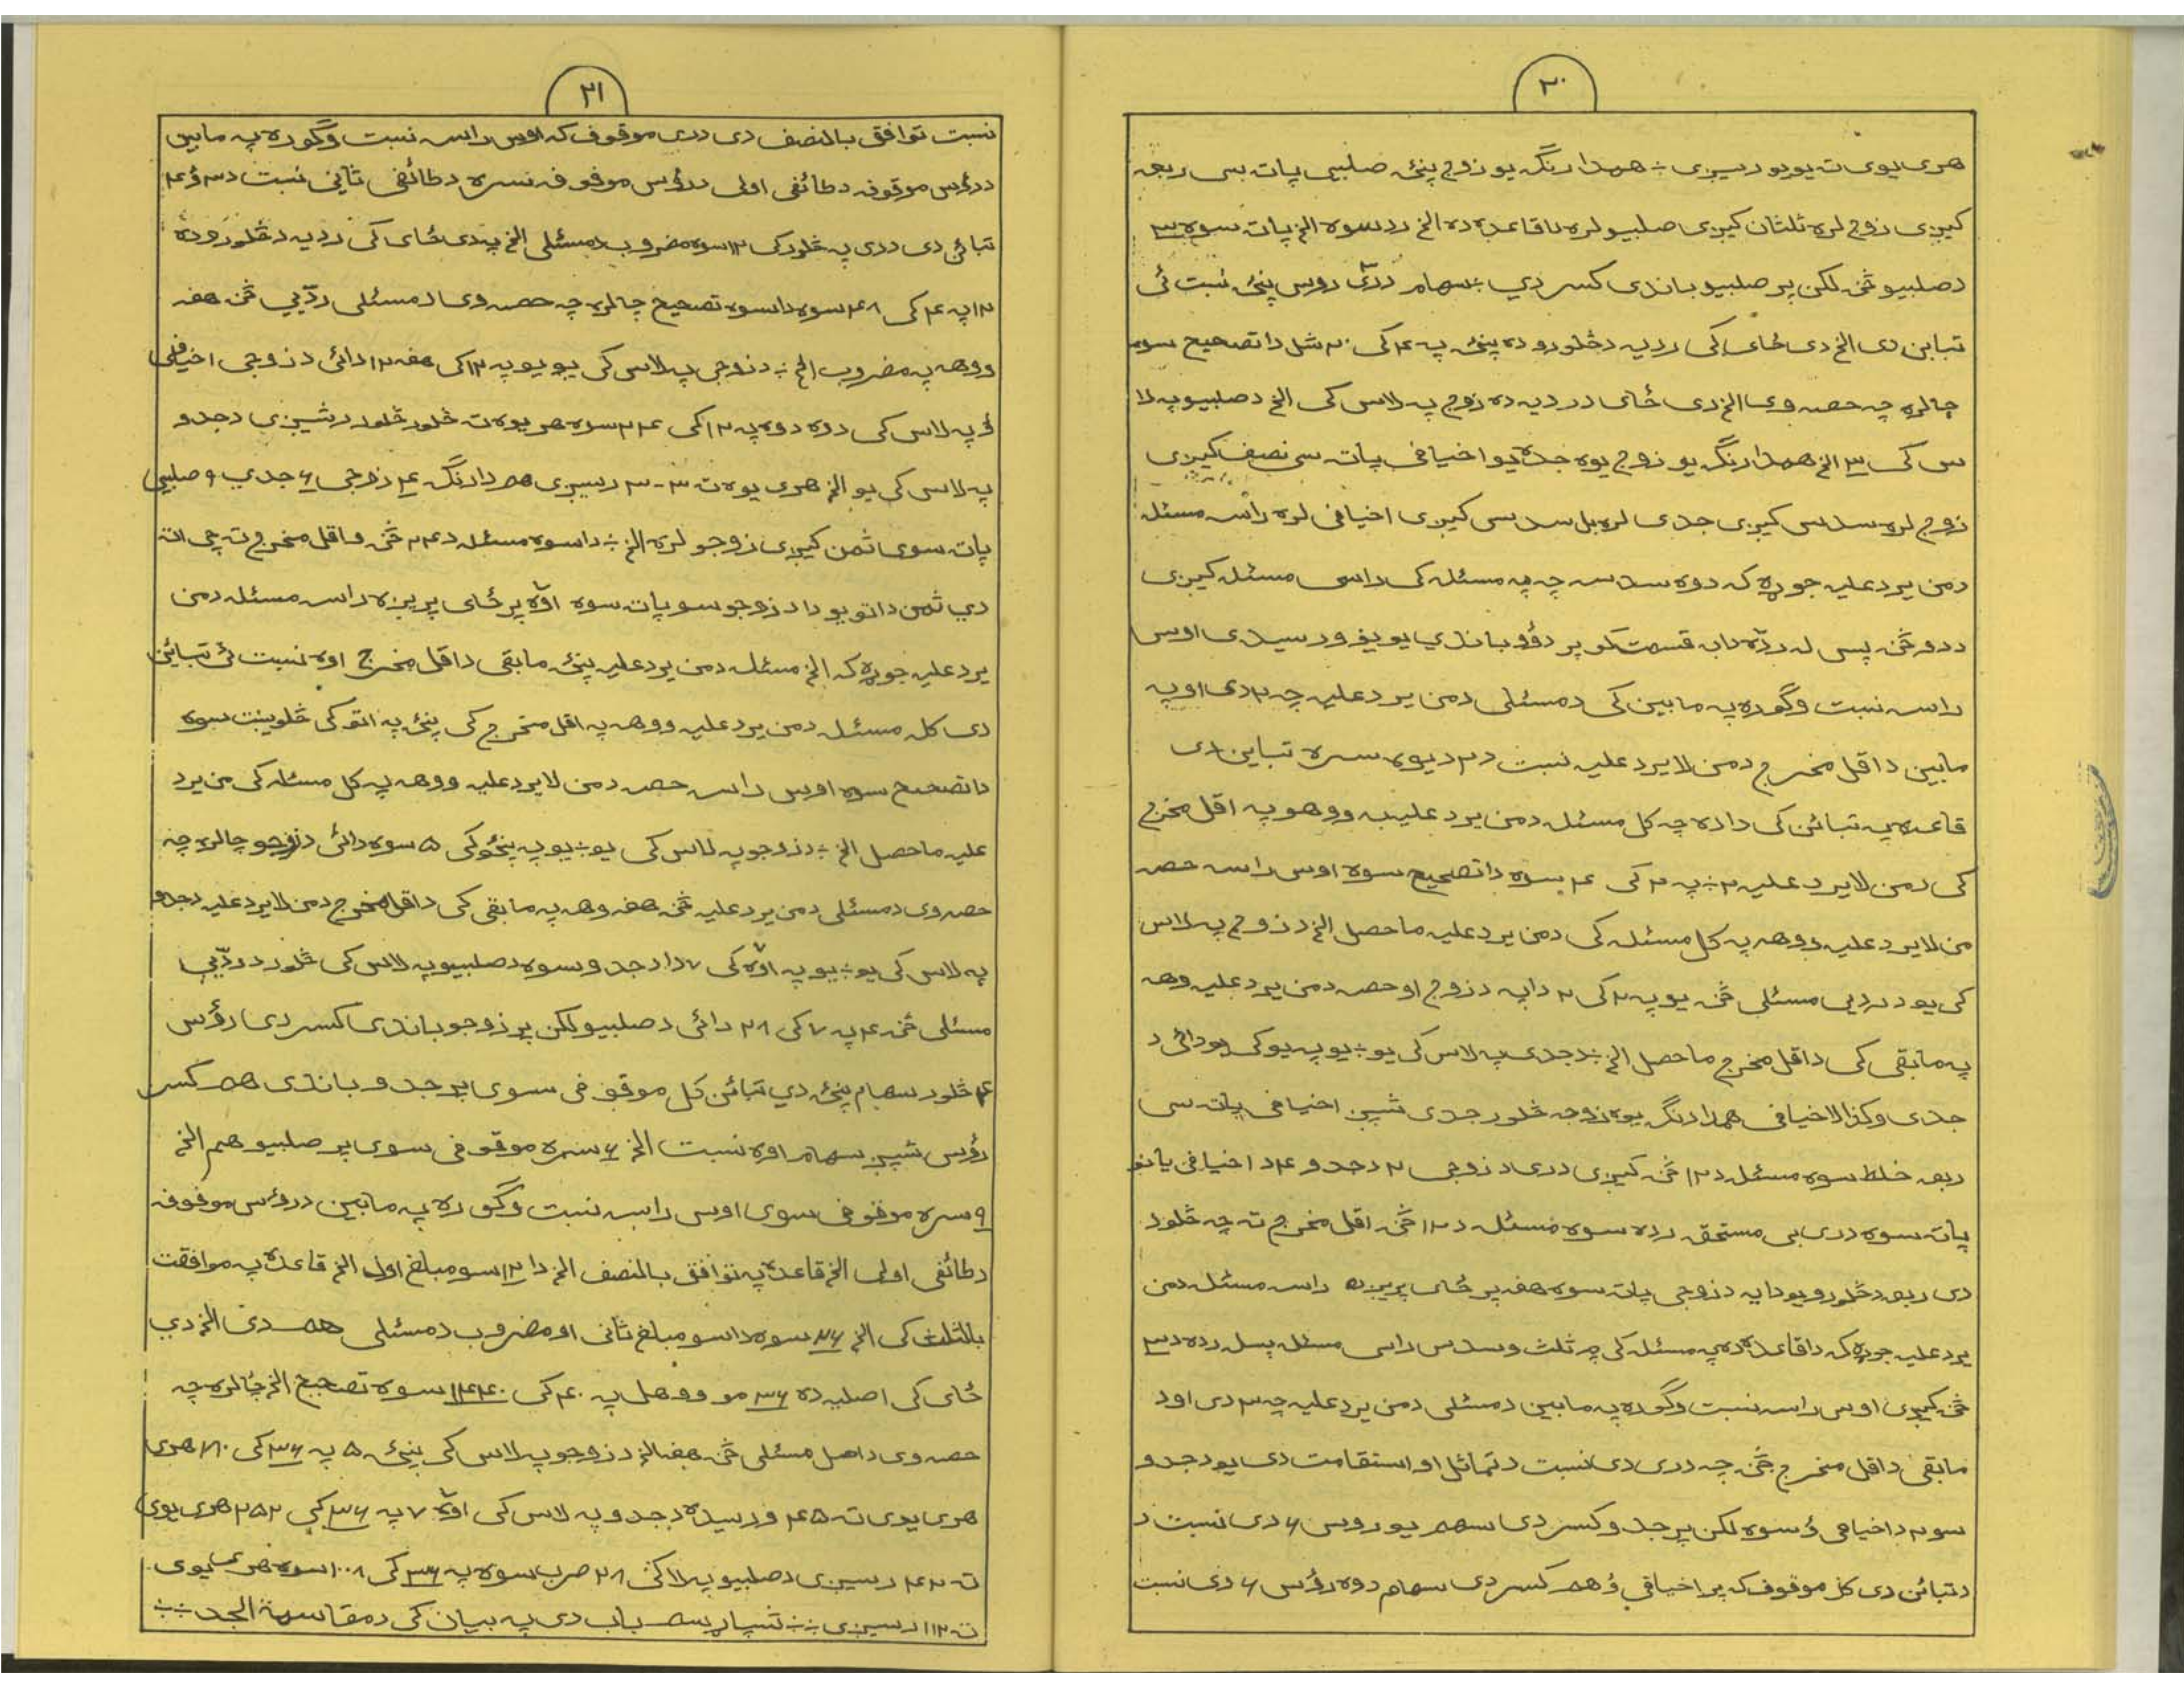 ٢٠
هری یوی ته یو یو رسیږی ÷ همدا رنګه یو زوج پنځه صلبیې پاته سی ربعه
کیږی زوج لره ثلثان کیږی صلبیو لره دا قاعده ده الخ رد سوه الخ پاته سوه ٣
د صلبیو څخه لکن پر صلبیو باندی کسر دي ÷ سهام دری روس پنځه نسبت ئی
تباین دی الخ دی ځای کی ردیه د څلورو ده پنځه په ۴ کی ٢٠ شل دا تصحیح سوه
چالره چه حصه وی الخ دی ځای د ردیه ده زوج په لاس کی الخ د صلبیو په لا
س کی ٣ الخ همدا رنګه یو زوج یوه جده یو اخیافی پاته سی نصف کیږی
زوج لره سدس کیږی جدی لره بل سدس کیږی اخیافی لره راسه مسئله
د من یرد علیه جوړه که دوه سدسه چه په مسئله کی راسی مسئله کیږی
د دو څخه پسی له رده دا به قسمت کو پر دؤو باندي یو یو ورسیدی اوس
راسه نسبت وګوره په مابین کی د مسئلی د من یرد علیه چه ٢ دی او په
مابین د اقل مخرج د من لایرد علیه نسبت د ٢ د یوه سره تباین دی
قاعده په تبائن کی داده چه کل مسئله د من یرد علیه به ووهو په اقل مخرج
کی د من لایرد علیه ٢ ÷ په ٢ کی ۴ سوه دا تصحیح سوه اوس راسه حصه
من لایرد علیه ووهه په کل مسئله کی د من یرد علیه ماحصل الخ د زوج په لاس
کی یو د ردیې مسئلی څخه یو په ٢ کی ٢ دا په د زوج او حصه د من یرد علیه وهه
په مابقی کی د اقل مخرج ماحصل الخ ÷ د جدی په لاس کی یو ÷ یو په یو کی یو دائی د
جدی وکذا لاخیافی همدا رنګه یوه زوجه څلور جدی شپږ اخیافی پاته سی
ربعه خلط سوه مسئله د ١٢ څخه کیږی دری د زوجی ٢ د جدو ۴ د اخیافی یا نو
پاته سوه دری بی مستحق رده سوه مسئله د ١٢ څخه اقل مخرج ته چه څلور
دی ربعه د څلورو یو دا په د زوجی پاته سوه هغه پر ځای پریږده راسه مسئله د من
یرد علیه جوړه که دا قاعده ده په مسئله کی چه ثلث وسدس راسی مسئله پسله رده د ٣
څخه کیږی اوس راسه نسبت وګوره په مابین د مسئلی د من یرد علیه چه ٣ دی او د
مابقی د اقل مخرج څخه چه دری دی نسبت د تماثل او استقامت دی یو د جدو
سو ٢ د اخیافی ؤ سوه لکن پر جدو کسر دی سهم یو روس ۴ دی نسبت د
د تبائن دی کل موقوف که پر اخیافي ؤ هم کسر دی سهام دوه رؤس ۶ دی نسبت
٢١
نسبت توافق بالنصف دی دری موقوف که اوس راسه نسبت وګوره په مابین
د رؤس موقوفه د طائفی اولی د رؤس موقوفه سره د طائفی ثانی نسبت د ٣ ؤ ۴
تبائن دی دری په څلور کی ١٢ سوه مضروب د مسئلی الخ پدی ځای کی ردیه د څلورو ده
١٢ په ۴ کی ۴٨ سوه دا سوه تصحیح چالره چه حصه وی د مسئلی ردّیې څخه هغه
ووهه په مضروب الخ ÷ د زوجی په لاس کی یو یو په ١٢ کی هغه ١٢ دائی د زوجی اخیافی
ؤ په لاس کی دوه دوه په ١٢ کی ٢۴ سوه هر یوه ته څلور څلور رسیږی د جدو
په لاس کی یو الخ هری یوه ته ٣-٣ رسیږی هم دا رنګه ۴ زوجی ۶ جدي ٩ صلبیې
پاته سوی ثمن کیږی زوجو لره الخ ÷ دا سوه مسئله د ٢۴ څخه واقل مخرج ته چی اته
دي ثمن د اتو یو دا د زوجو سو پاته سوه اوه پر ځای پریږه راسه مسئله د من
یرد علیه جوړه که الخ مسئله د من یرد علیه پنځه مابقی د اقل مخرج اوه نسبت ئی تبائن
دی کل مسئله د من یرد علیه ووهه په اقل مخرج کی پنځه په اتو کی څلویښت سوه
دا تصحیح سوه اوس راسه حصه د من لایرد علیه ووهه په کل مسئله کی من یرد
علیه ماحصل الخ ÷ د زوجو په لاس کی یو ÷ یو په پنځو کی ۵ سوه دائی د زوجو چالره چه
حصه وی د مسئلی د من یرد علیه څخه هغه وهه په مابقی کی د اقل مخرج د من لایرد علیه د جدو
په لاس کی یو ÷ یو په اوه کی ٧ دا د جدو سوه د صلبیو په لاس کی څلور د ردّیې
مسئلی څخه ۴ په ٧ کی ٢٨ دائی د صلبیو لکن پر زوجو باندی کسر دی رؤس
۴ څلور سهام پنځه دي تبائن کل موقوفی سوی پر جدو باندی هم کسر
رؤس شپږ سهام اوه نسبت الخ ۶ سره موقوفی سوی پر صلبیو هم الخ
٩ سره موقوفی سوی اوس راسه نسبت وګوره په مابین د رؤس موقوفه
د طائفی اولی الخ قاعده په توافق بالنصف الخ دا ١٢ سو مبلغ اول الخ قاعده په موافقت
بالثلث کی الخ ٣۶ سوه دا سو مبلغ ثانی او مضروب د مسئلی هم دی الخ دي
ځای کی اصلیه ده ٣۶ مو ووهل په ۴٠ کی ١۴۴٠ سوه تصحیح الخ چالره چه
حصه وی د اصل مسئلی څخه هغه الخ د زوجو په لاس کی پنځه ۵ په ٣۶ کی ١٨٠ هری
هری یوی ته ۴۵ ورسیده د جدو په لاس کی اوه ٧ په ٣۶ کی ٢۵٢ هری یوی
ته ۴٢ رسیږی د صلبیو په لا کی ٢٨ ضرب سوه په ٣۶ کی ١٠٠٨ سوه هری یوی
ته ١١٢ رسیږی ÷÷ باب دی په بیان کی د مقاسمة الجد ÷÷